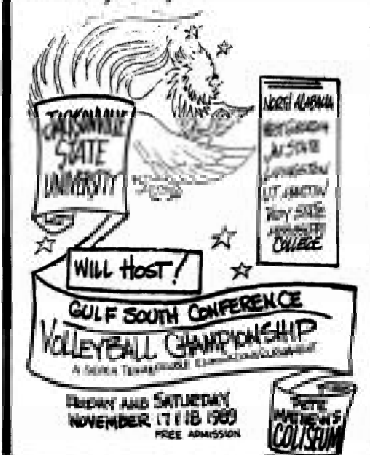 JACKSONVILLE
STATE
UNIVERSITY
NORTH ALABAMA
WEST GEORGIA
JAX STATE
LIVINGSTON
UT MARTIN
TROY STATE
MISSISSIPPI
COLLEGE
WILL HOST!
GULF SOUTH CONFERENCE
VOLLEYBALL CHAMPIONSHIP
A SEVEN TEAM DOUBLE ELIMINATION TOURNAMENT
FRIDAY AND SATURDAY
NOVEMBER 17 & 18 1989
FREE ADMISSION
PETE
MATHEWS
COLISEUM